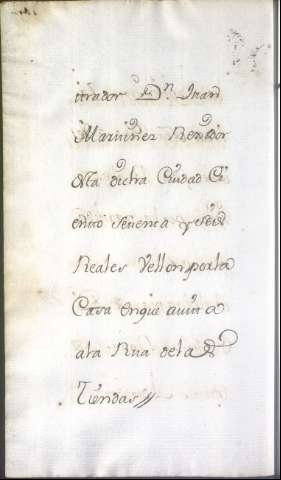 trador Dn. Juan
Martinez Rexidor
desta dicha Ciudad Ci
ento setenta y seis
Reales Vellon por la
Casa en que avita
a la Rua de las
Tiendas //